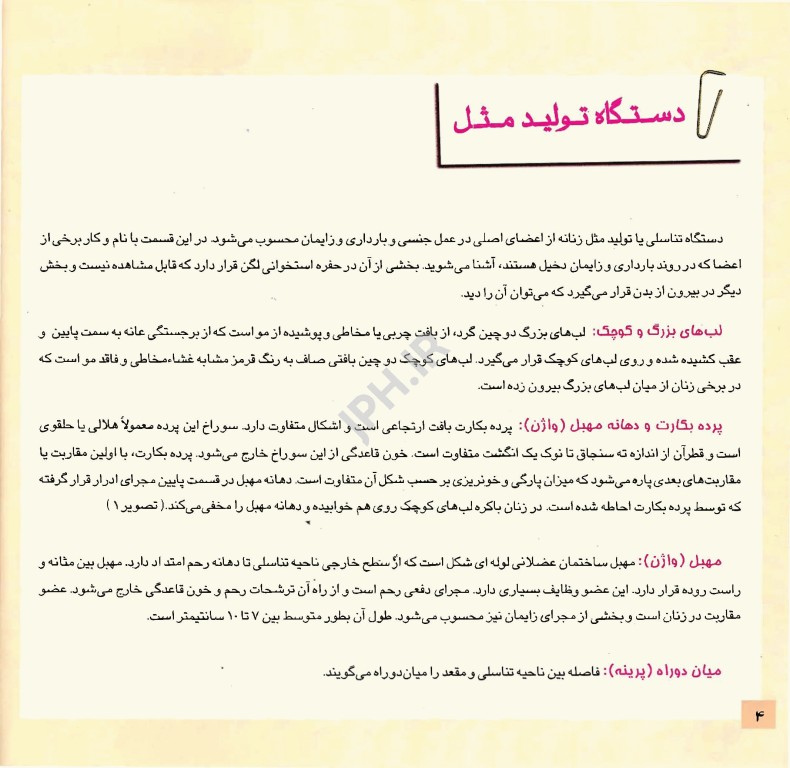 دستگاه تولید مثل
دستگاه تناسلی یا تولید مثل زنانه از اعضای اصلی در عمل جنسی و بارداری و زایمان محسوب می‌شود. در این قسمت با نام و کار برخی از
اعضا که در روند بارداری و زایمان دخیل هستند، آشنا می‌شوید. بخشی از آن در حفره استخوانی لگن قرار دارد که قابل مشاهده نیست و بخش
دیگر در بیرون از بدن قرار می‌گیرد که می‌توان آن را دید.
لب‌های بزرگ و کوچک: لب‌های بزرگ دو چین گرد، از بافت چربی یا مخاطی و پوشیده از مو است که از برجستگی عانه به سمت پایین و
عقب کشیده شده و روی لب‌های کوچک قرار می‌گیرد. لب‌های کوچک دو چین بافتی صاف به رنگ قرمز مشابه غشاءمخاطی و فاقد مو است که
در برخی زنان از میان لب‌های بزرگ بیرون زده است.
پرده بکارت و دهانه مهبل (واژن): پرده بکارت بافت ارتجاعی است و اشکال متفاوت دارد. سوراخ این پرده معمولاً هلالی یا حلقوی
است و قطرآن از اندازه ته سنجاق تا نوک یک انگشت متفاوت است. خون قاعدگی از این سوراخ خارج می‌شود. پرده بکارت، با اولین مقاربت یا
مقاربت‌های بعدی پاره می‌شود که میزان پارگی و خونریزی بر حسب شکل آن متفاوت است. دهانه مهبل در قسمت پایین مجرای ادرار قرار گرفته
که توسط پرده بکارت احاطه شده است. در زنان باکره لب‌های کوچک روی هم خوابیده و دهانه مهبل را مخفی می‌کند.( تصویر ۱ )
مهبل (واژن): مهبل ساختمان عضلانی لوله ای شکل است که از سطح خارجی ناحیه تناسلی تا دهانه رحم امتداد دارد. مهبل بین مثانه و
راست روده قرار دارد. این عضو وظایف بسیاری دارد. مجرای دفعی رحم است و از راه آن ترشحات رحم و خون قاعدگی خارج می‌شود. عضو
مقاربت در زنان است و بخشی از مجرای زایمان نیز محسوب می‌شود. طول آن بطور متوسط بین ۷ تا ۱۰ سانتیمتر است.
میان دوراه (پرینه): فاصله بین ناحیه تناسلی و مقعد را میان‌دوراه می‌گویند.
۴
JPH.IR